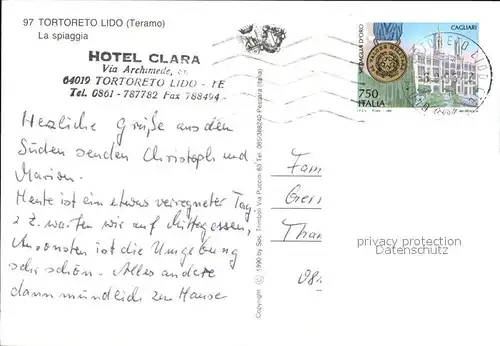 97 TORTORETO LIDO (Teramo)
La spiaggia
HOTEL CLARA
Via Archimede,
64019 TORTORETO LIDO - TE
Tel. 0861 - 787782 Fax 788494
Herzliche Grüße aus dem
Süden senden Christoph und
Marion.
Heute ist ein etwas verregneter Tag
z Z. warten wir auf Mittagessen,
Ansonsten ist die Umgebung
sehr schön. Alles andere
dann mündlich zu Hause
Copyright © 1990 by Soc. Trimboli Via Puccini 63 Tel. 085/388240 Pescara (Italia)
MEDAGLIA D'ORO
CAGLIARI
750
ITALIA
TORTORETO LIDO
Fam
Gerr
Than
privacy protection
Datenschutz